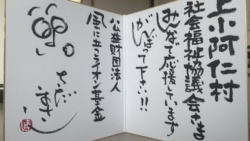 上小阿仁村
社会福祉協議会さま
みんなで応援しています
がんばって下さい!!
公益財団法人
風に立つライオン基金
さだまさし